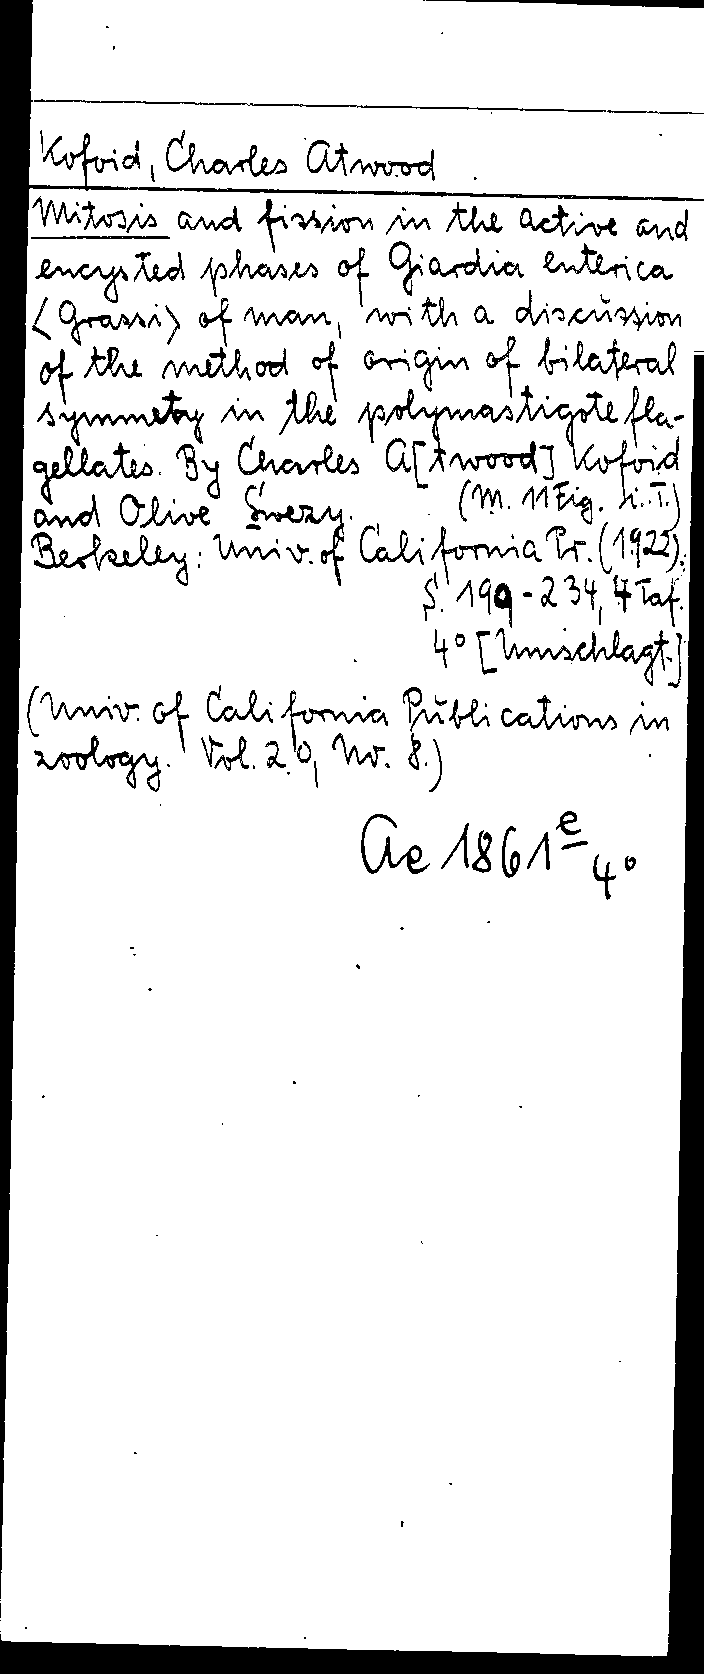 Kofoid, Charles Atwood
Mitosis and fission in the active and
encysted phases of Giardia enterica
<Grassi> of man, with a discussion
of the method of origin of bilateral
symmetry in the polymastigote fla-
gellates. By Charles A[twood] Kofoid
and Olive Swezy. (M. 11 Fig. i. T.)
Berkeley: Univ. of California Pr. (1922).
S. 199-234, 4 Taf.
4° [Umschlagt.]
(Univ. of California Publications in
zoology. Vol. 20, No. 8.)
Ae 1861e 4°